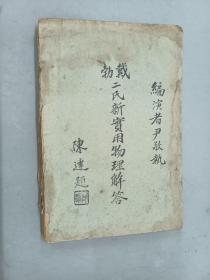 編演者尹敬執
戴勃二氏新實用物理解答
陳達題